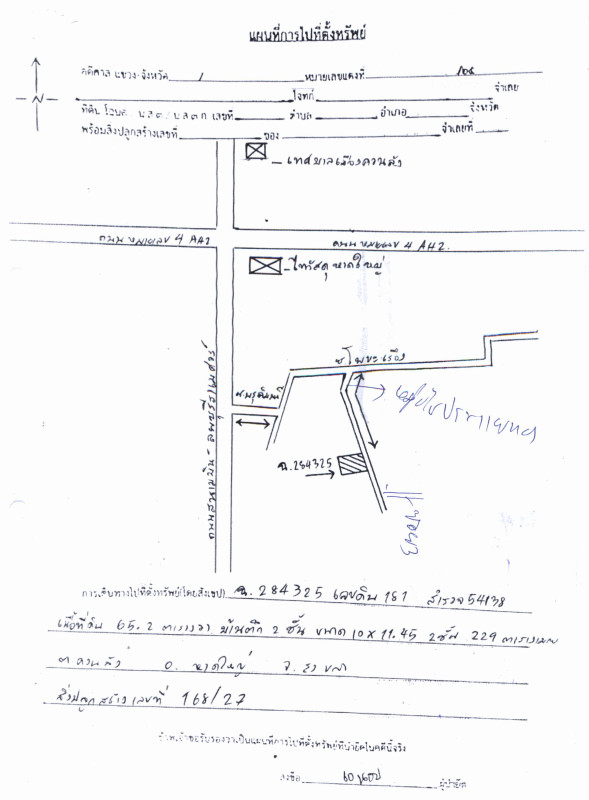 แผนที่การไปที่ตั้งทรัพย์
คดีศาล แขวง-จังหวัด / หมายเลขแดงที่
โจทก์ จำเลย
ที่ดิน โฉนด เลขที่ ตำบล อำเภอ จังหวัด
พร้อมสิ่งปลูกสร้างเลขที่ ของ จำเลยที่
N
เทศบาลเมืองควนลัง
ถนน หมายเลข 4 AH2
ถนน หมายเลข 4 AH2.
ไทวัสดุ หาดใหญ่
ถนนสนามบิน - ลพบุรีราเมศวร์
ฉ.284325
การเดินทางไปที่ตั้งทรัพย์(โดยสังเขป) ฉ. 284325 เลขดิน 181 สำรวจ 54138
เนื้อที่ดิน 65.2 ตารางวา บ้านตึก 2 ชั้น ขนาด 10 x 11.45 2ชั้น 229 ตารางเมตร
ต ควนลัง อ. หาดใหญ่ จ. สงขลา
สิ่งปลูกสร้าง เลขที่ 168/27
ข้าพเจ้าขอรับรองว่าเป็นแผนที่การไปที่ตั้งทรัพย์ที่นำยึดในคดีนี้จริง
ลงชื่อ ผู้นำยึด